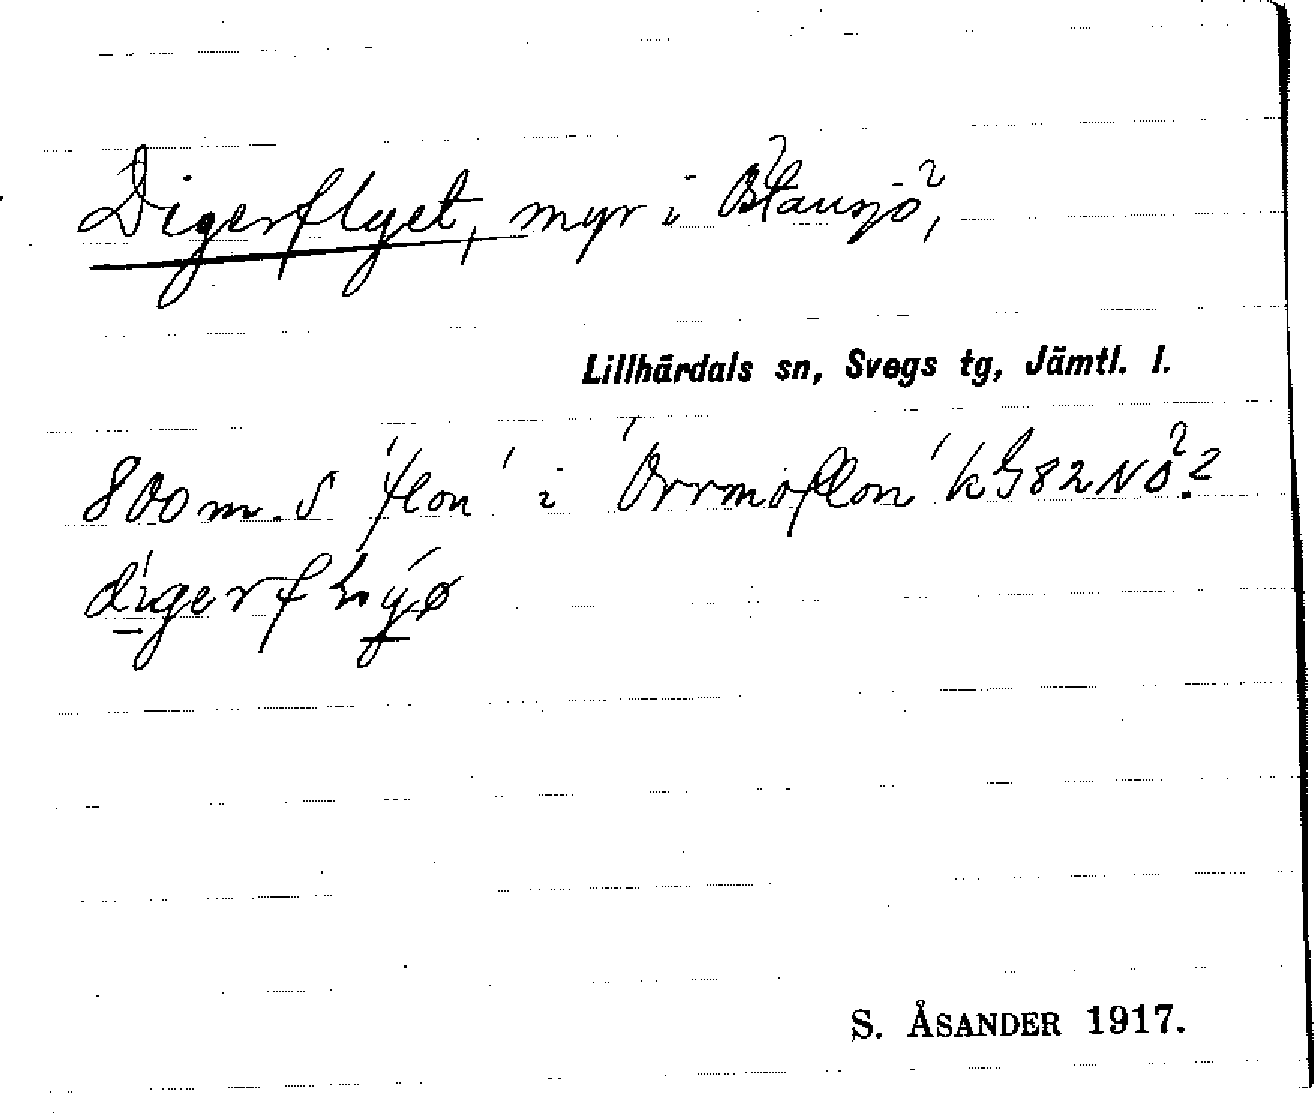 Digerflyget, myr i
Lillhärdals sn, Svegs tg, Jämtl. l.
800 m. S 'flon' i 'Orrmoflon' kG82NÖ?
digerf
S. ÅSANDER 1917.